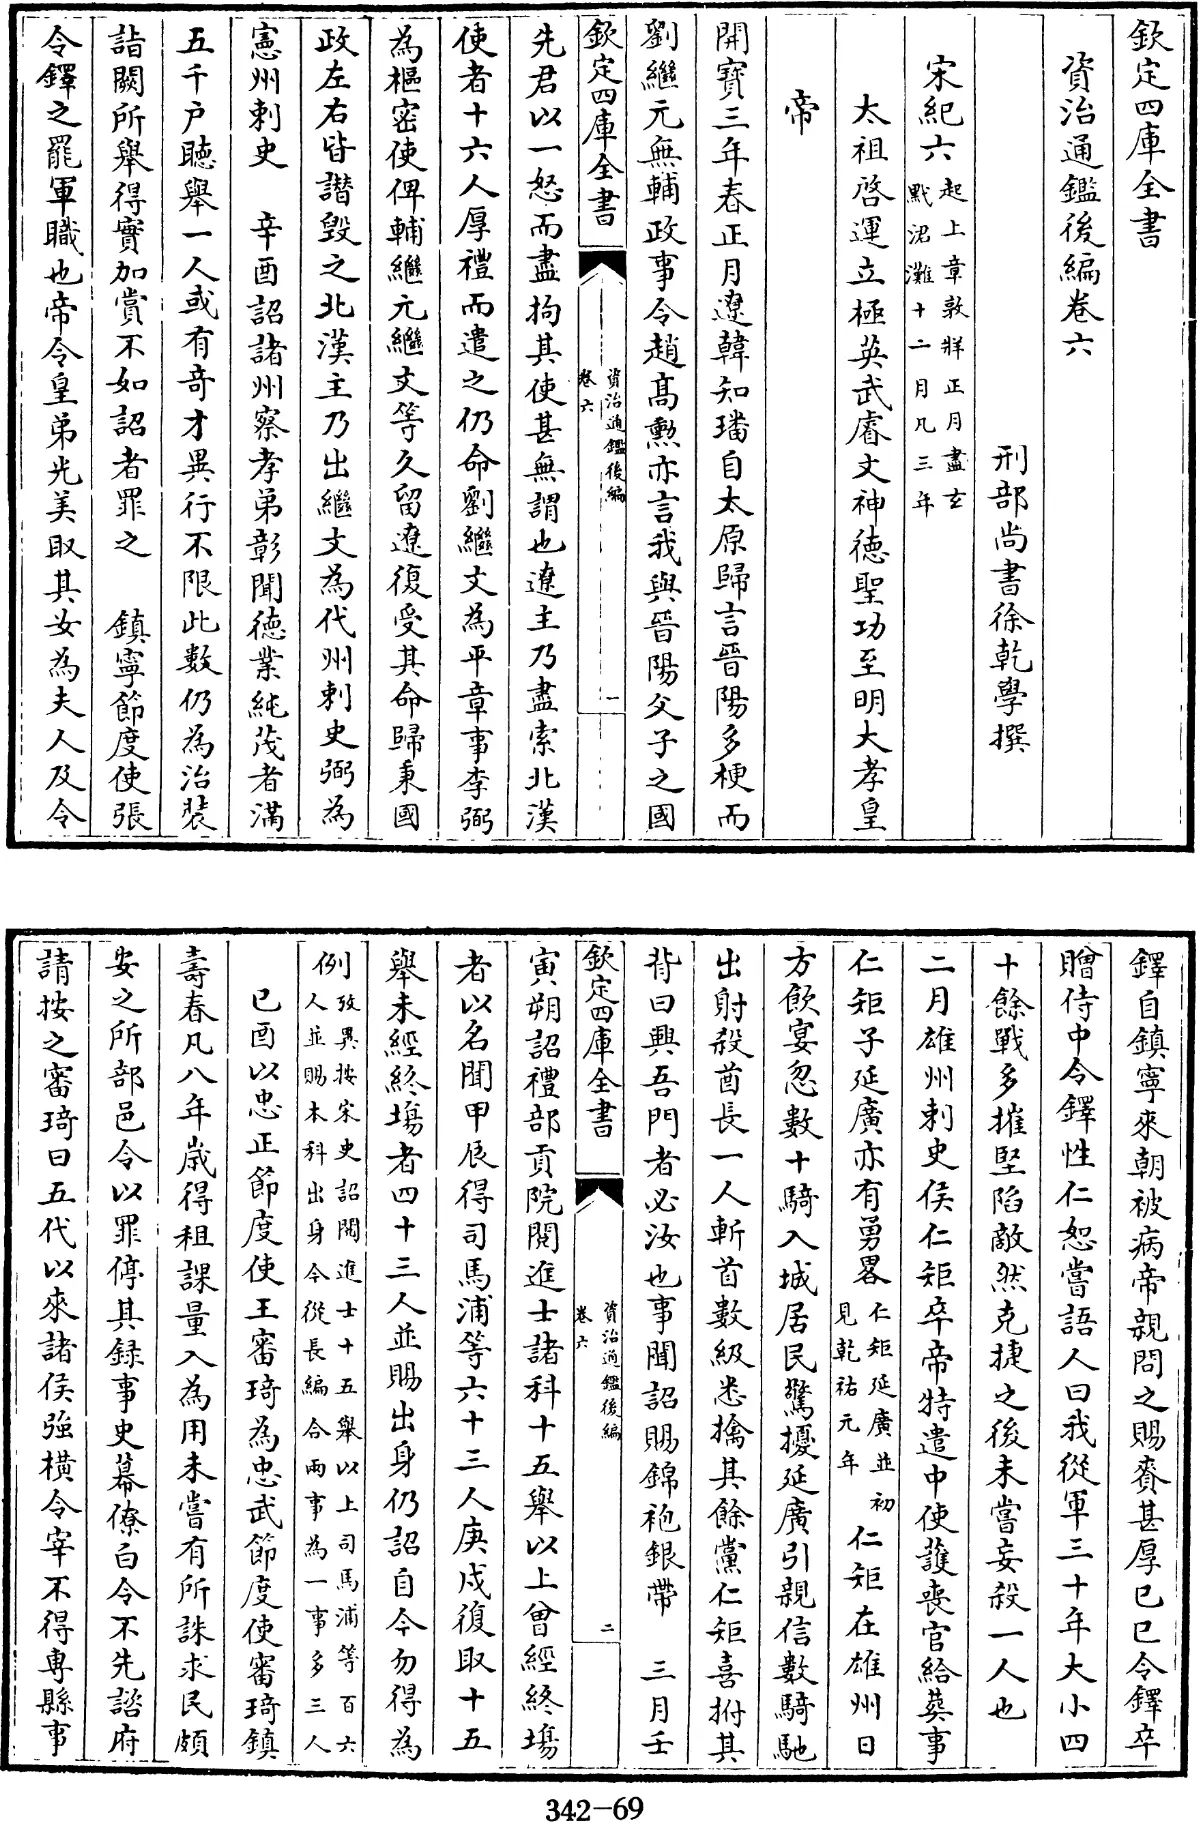 欽定四庫全書
資治通鑑後編卷六
刑部尚書徐乾學撰
宋紀六起上章敦牂正月盡玄
黓涒灘十二月凡三年
太祖啓運立極英武睿文神德聖功至明大孝皇
帝
開寶三年春正月遼韓知璠自太原歸言晉陽多梗而
劉繼元無輔政事令趙髙勲亦言我與晉陽父子之國
欽定四庫全書
資治通鑑後編
卷六
一
先君以一怒而盡拘其使甚無謂也遼主乃盡索北漢
使者十六人厚禮而遣之仍命劉繼文為平章事李弼
為樞密使俾輔繼元繼文等久留遼復受其命歸秉國
政左右皆譖毀之北漢主乃出繼文為代州刺史弼為
憲州刺史　辛酉詔諸州察孝弟彰聞徳業純茂者滿
五千户聴舉一人或有竒才異行不限此數仍為治裝
詣闕所舉得實加賞不如詔者罪之　鎮寧節度使張
令鐸之罷軍職也帝令皇弟光美取其女為夫人及令
鐸自鎮寧來朝被病帝親問之賜賚甚厚已巳令鐸卒
贈侍中令鐸性仁恕嘗語人曰我從軍三十年大小四
十餘戰多摧堅陷敵然克捷之後未嘗妄殺一人也
二月雄州刺史侯仁矩卒帝特遣中使護喪官給葬事
仁矩子延廣亦有勇畧仁矩延廣並初
見乾祐元年仁矩在雄州日
方飲宴忽數十騎入城居民驚擾延廣引親信數騎馳
出射殺酋長一人斬首數級悉擒其餘黨仁矩喜拊其
背曰興吾門者必汝也事聞詔賜錦袍銀帶　三月壬
欽定四庫全書
資治通鑑後編
卷六
二
寅朔詔禮部貢院閱進士諸科十五舉以上曾經終塲
者以名聞甲辰得司馬浦等六十三人庚戌復取十五
舉未經終塲者四十三人並賜出身仍詔自今勿得為
例攷異按宋史詔閱進士十五舉以上司馬浦等百六
人並賜本科出身今從長編合兩事為一事多三人
已酉以忠正節度使王審琦為忠武節度使審琦鎮
壽春凡八年嵗得租課量入為用未嘗有所誅求民頗
安之所部邑令以罪停其録事史幕僚白令不先諮府
請按之審琦曰五代以來諸侯強横令宰不得専縣事
342-69